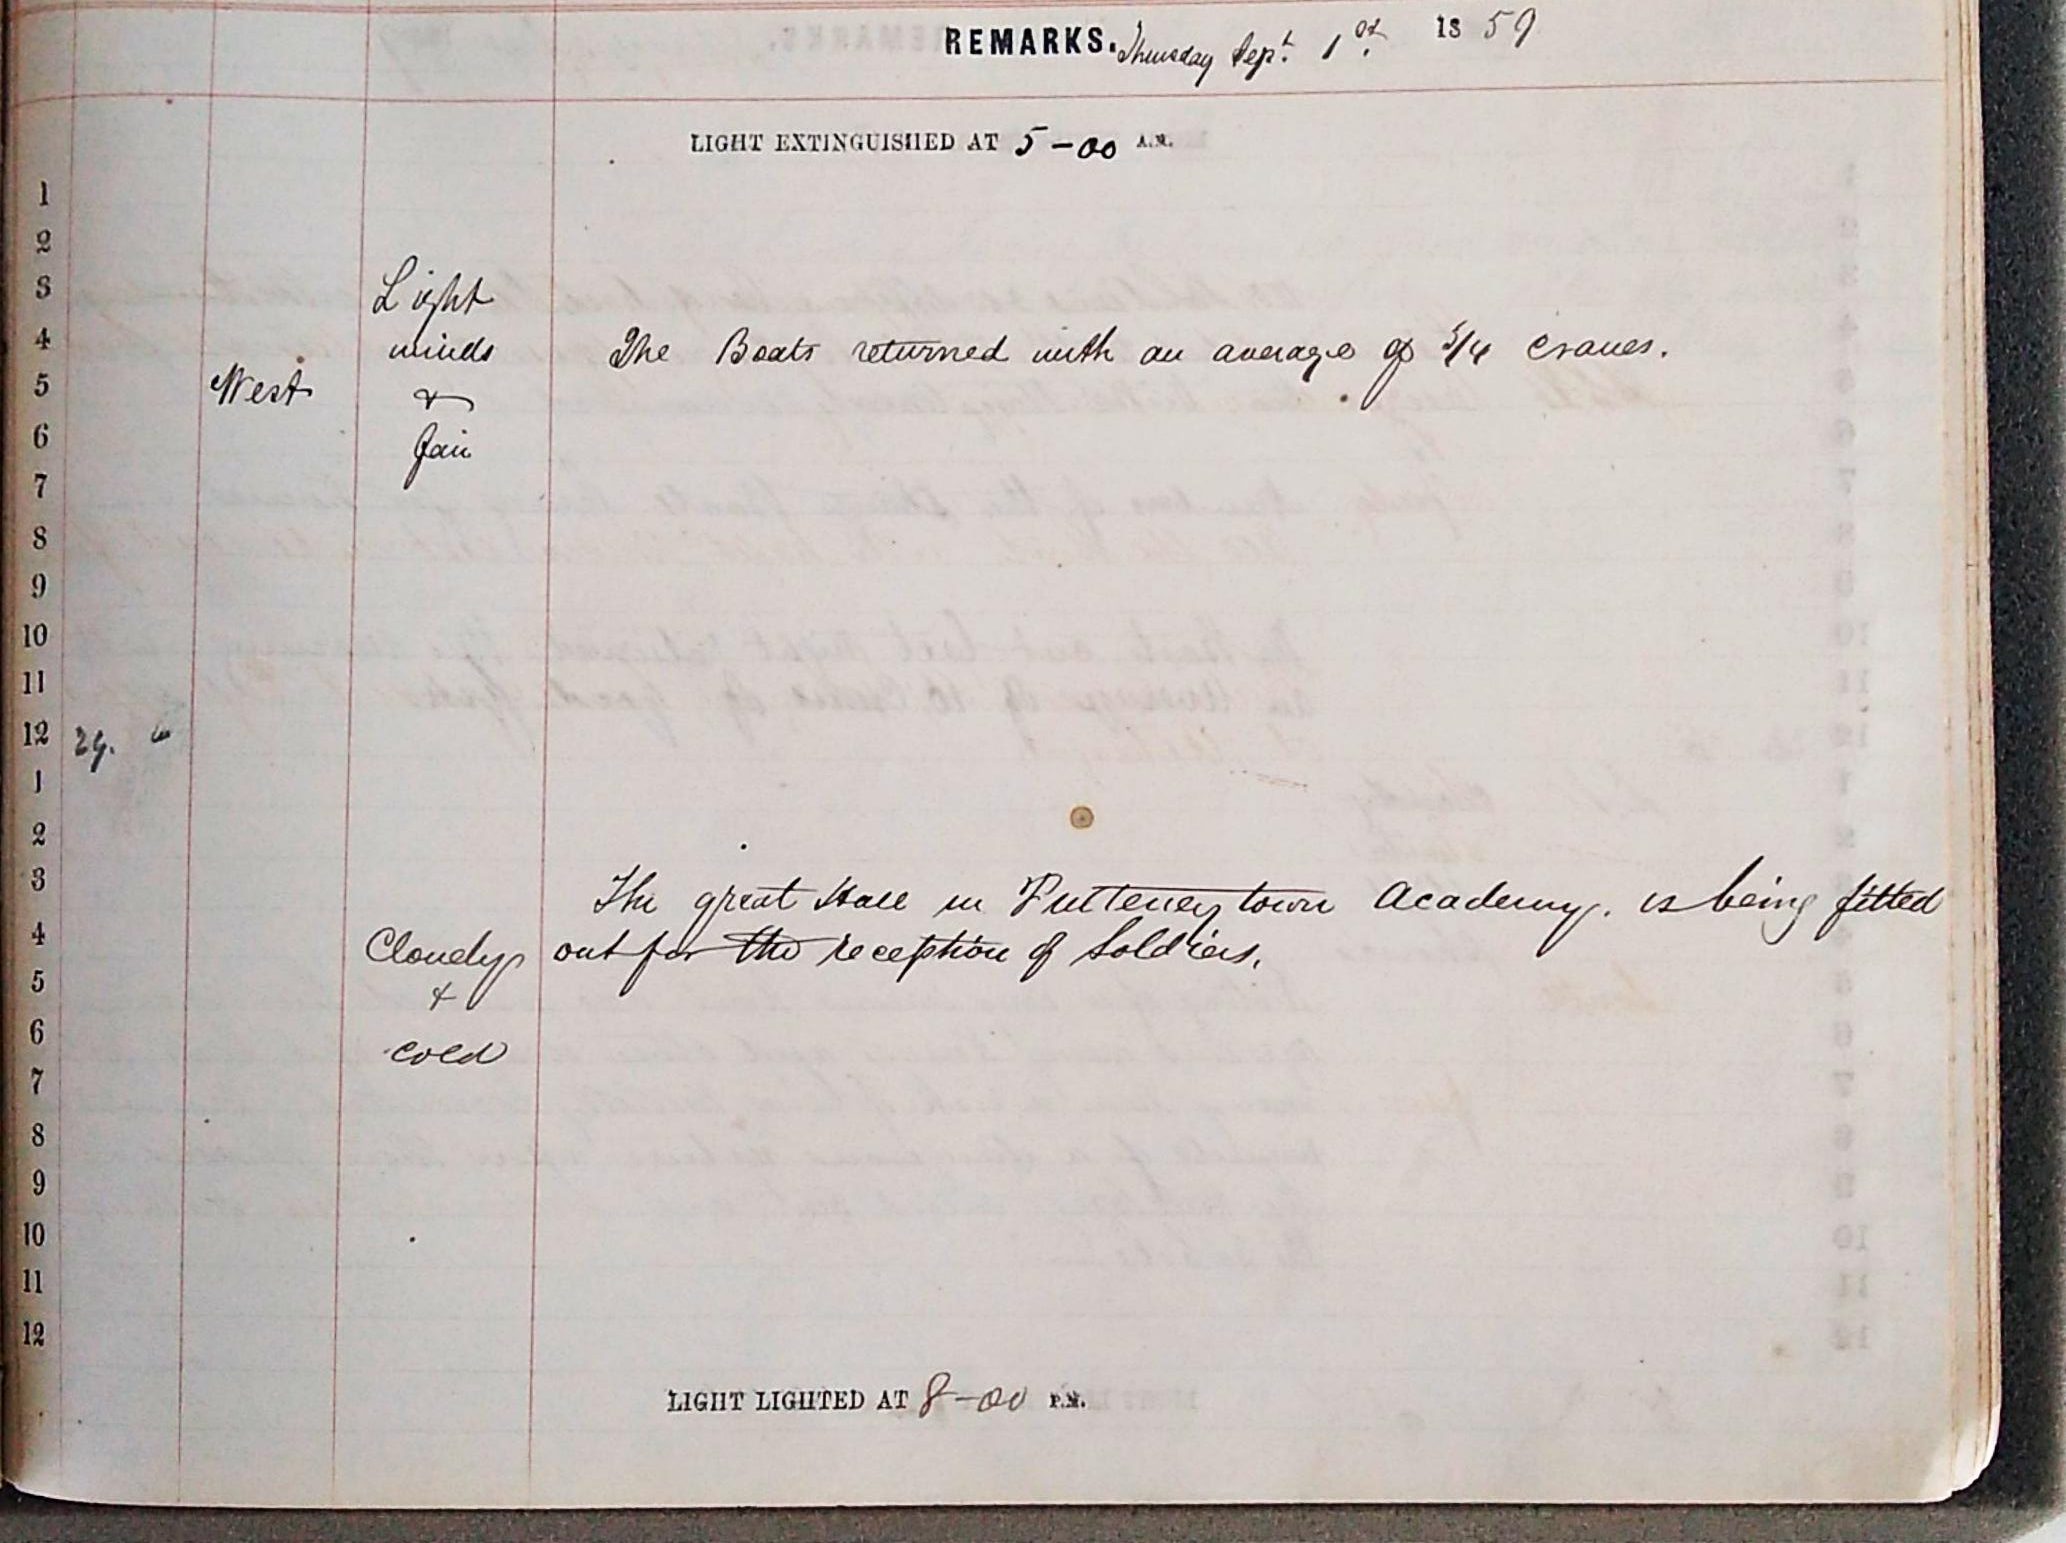 REMARKS. Thursday Sept. 1st. 1859
LIGHT EXTINGUISHED AT 5-00 A.M.
1
2
3 Light
4 winds The Boats returned with an average of 3/4 cranes.
5 West &
6 fair
7
8
9
10
11
12 29.
1
2
3 The great Hall in Pulteneytown Academy. is being fitted
4 Cloudy out for the reception of Soldiers.
5 &
6 cold
7
8
9
10
11
12
LIGHT LIGHTED AT 8-00 P.M.